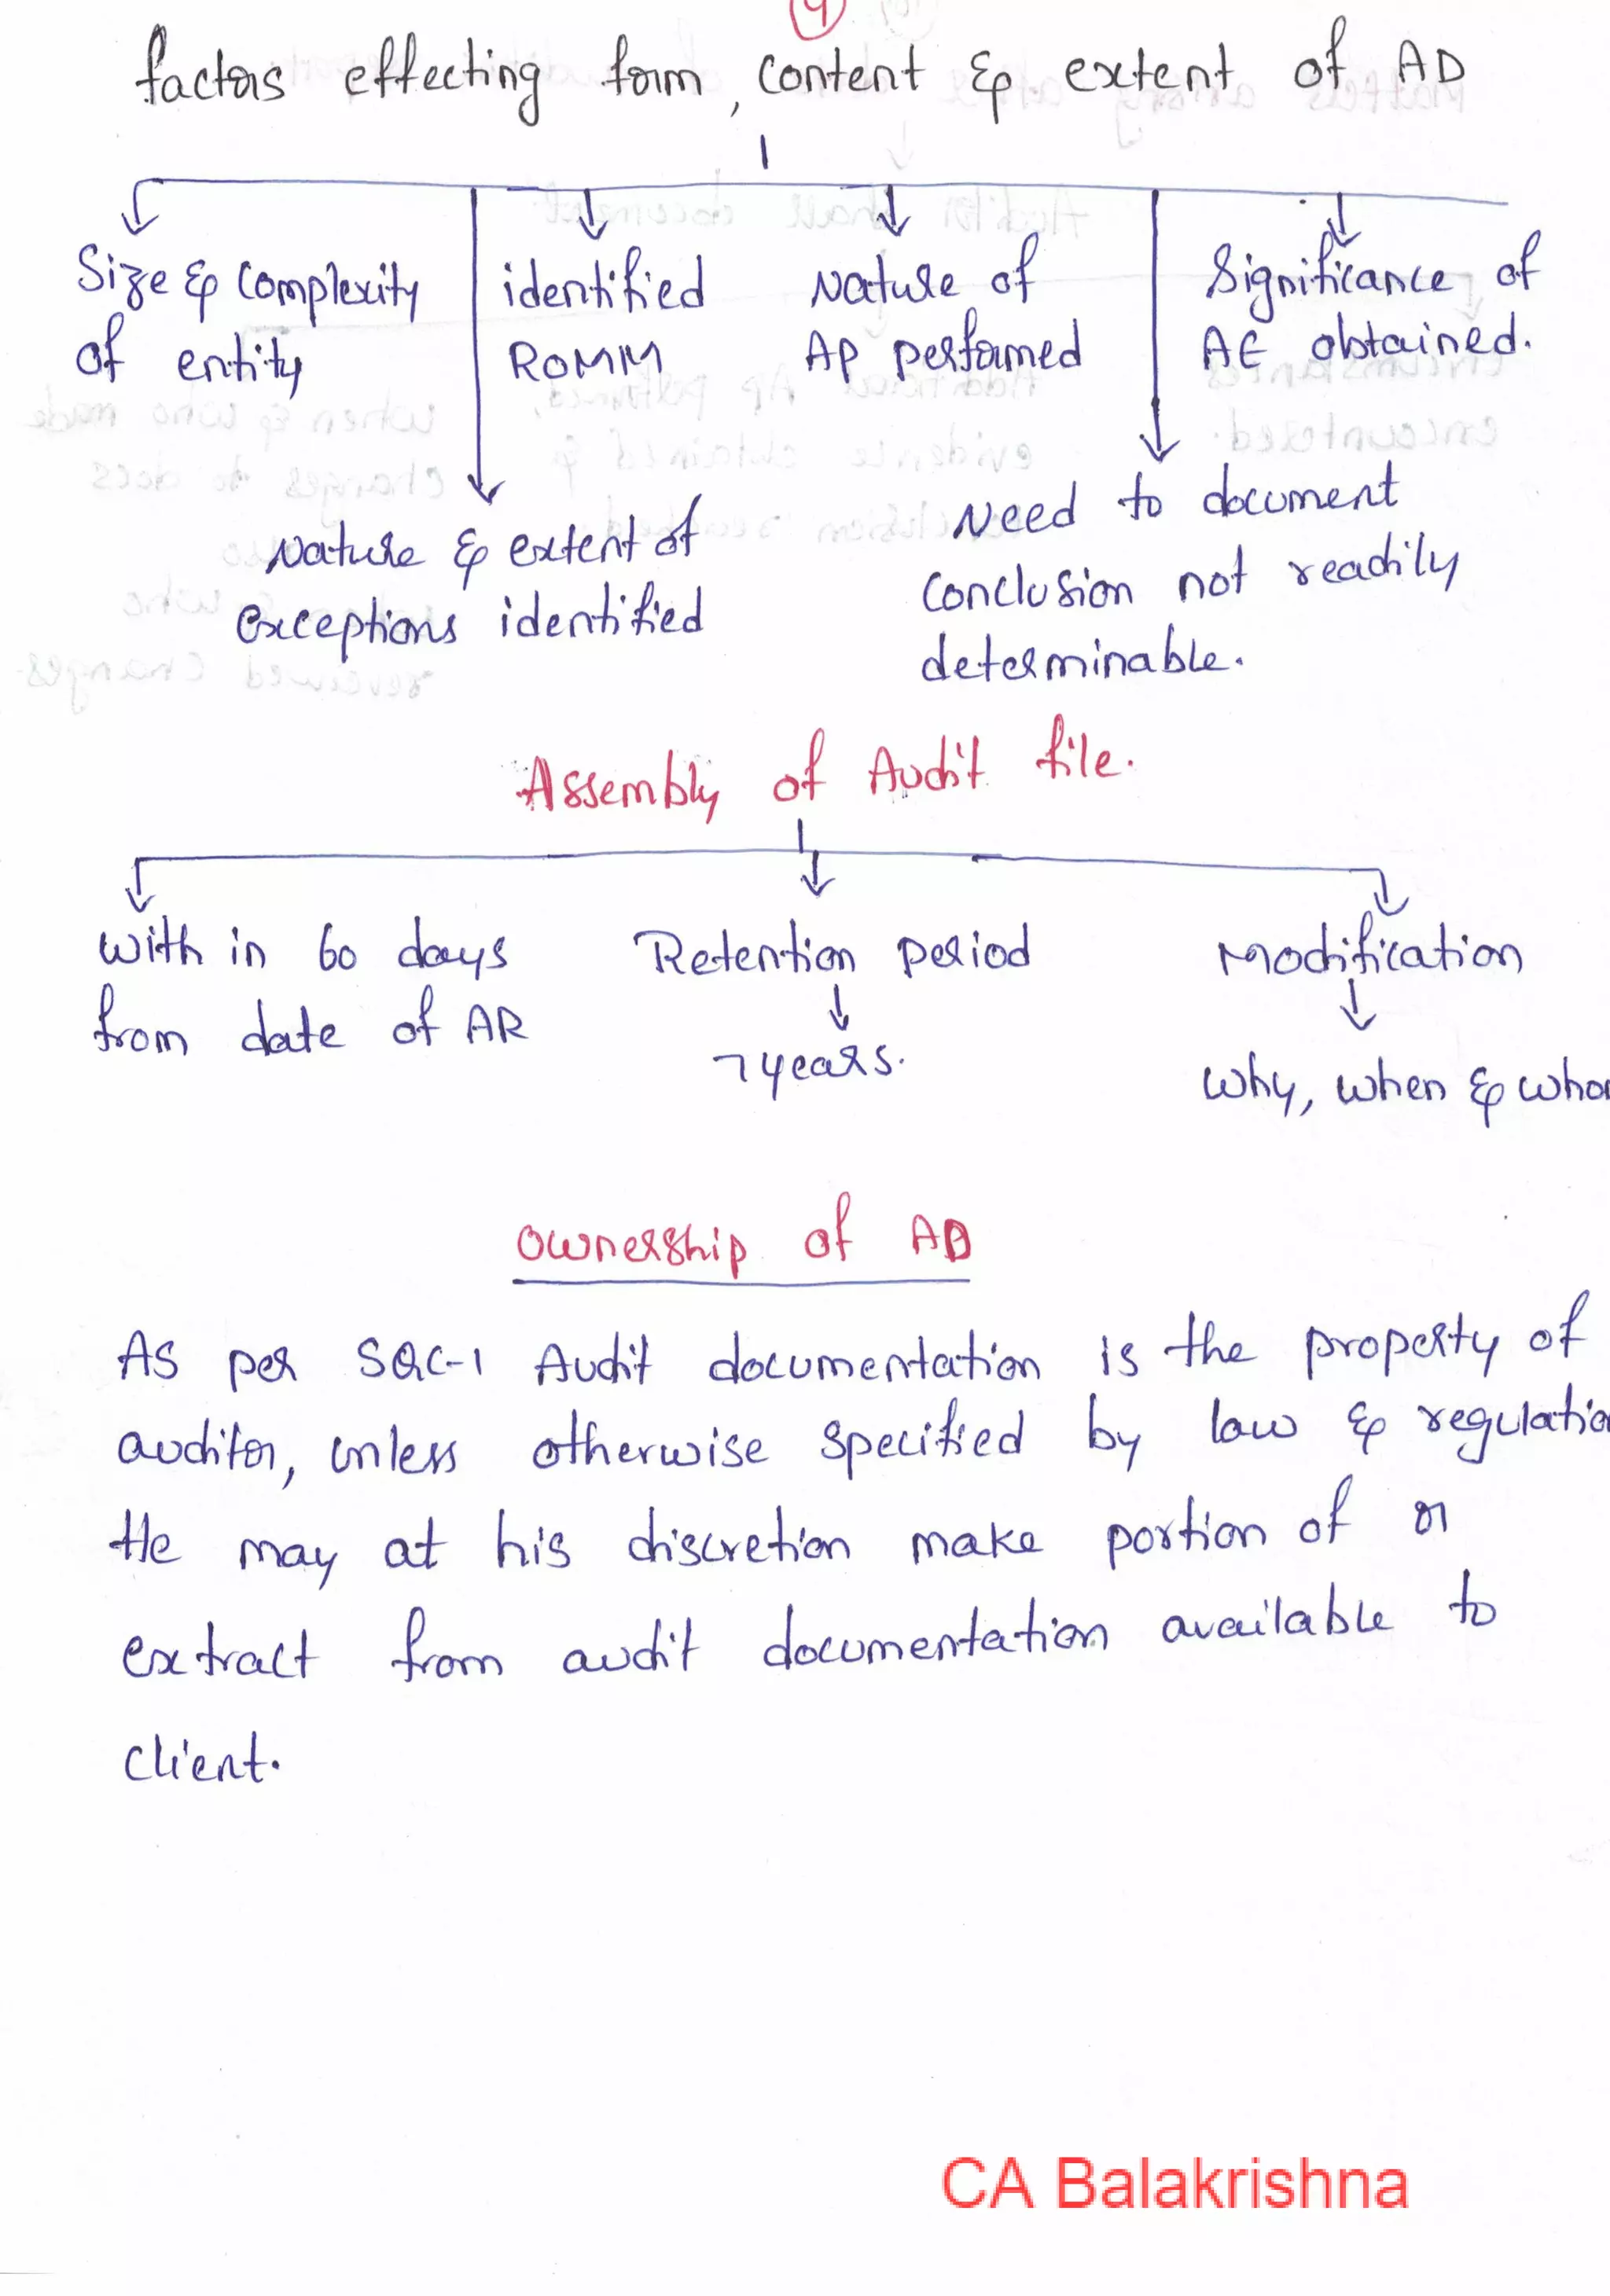 4
factors effecting form, content & extent of AD
Size & complexity
of entity
identified
ROMM
Nature of
AP performed
Significance of
AE obtained.
Nature & extent of
exceptions identified
Need to document
conclusion not readily
determinable.
Assembly of Audit file.
with in 60 days
from date of AR
Retention period
7 years.
Modification
Why, when & whom
Ownership of AD
As per SQC-1 Audit documentation is the property of
auditor, unless otherwise specified by law & regulatio
He may at his discretion make portion of or
extract from audit documentation available to
client.
CA Balakrishna